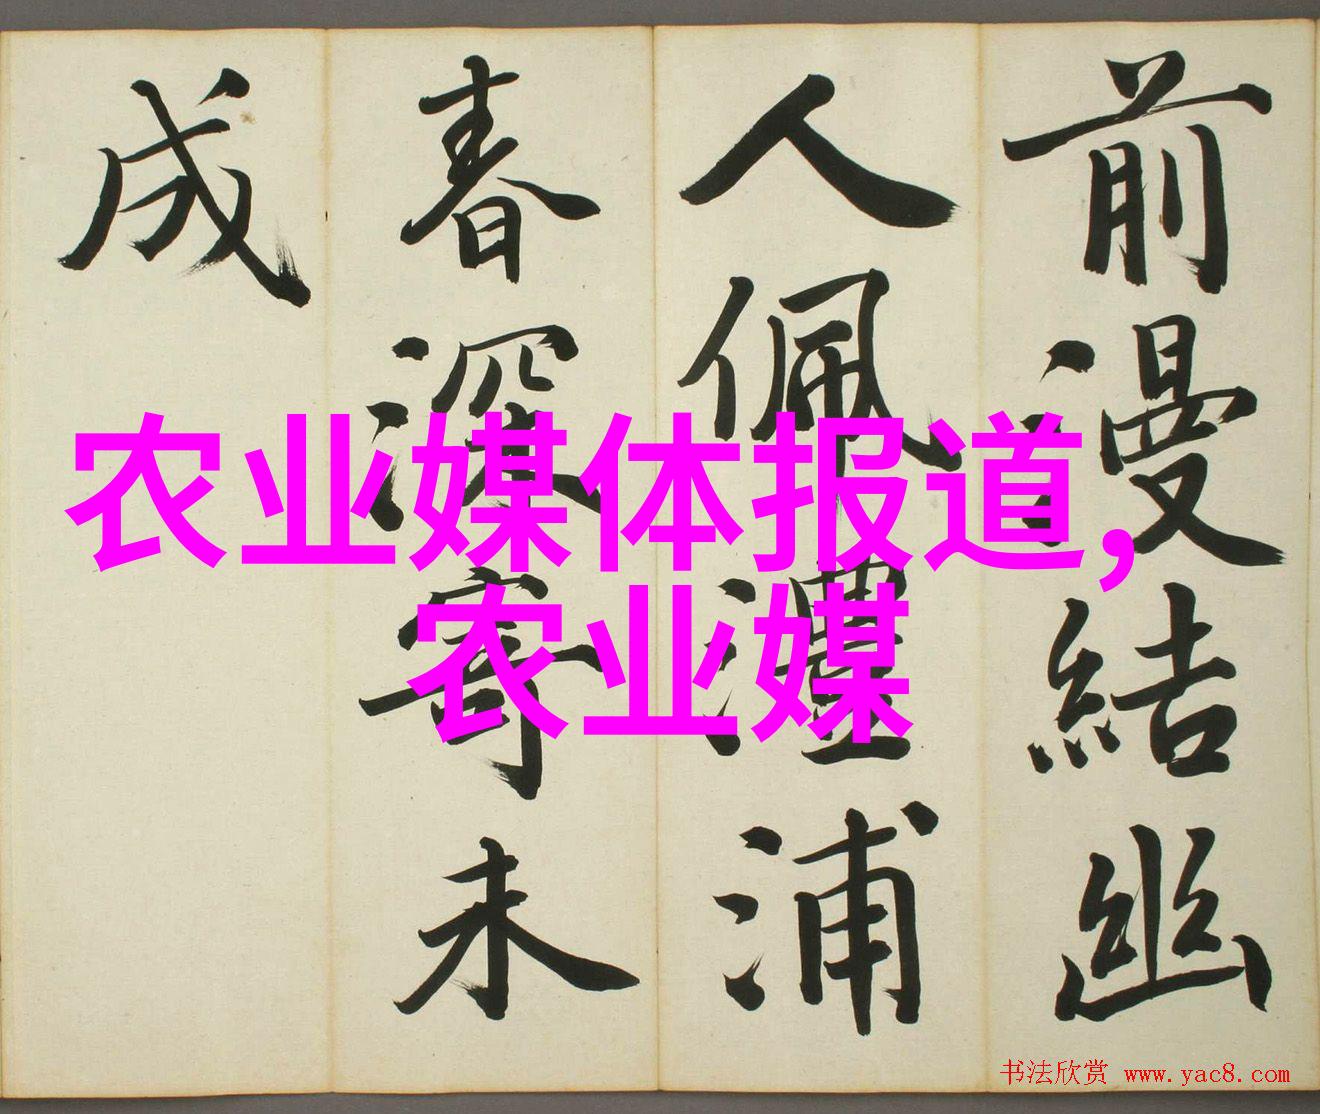 前漫結幽
人佩澧浦
春深寄未
成
农业媒体报道，
农业媒
书法欣赏 www.yac8.com